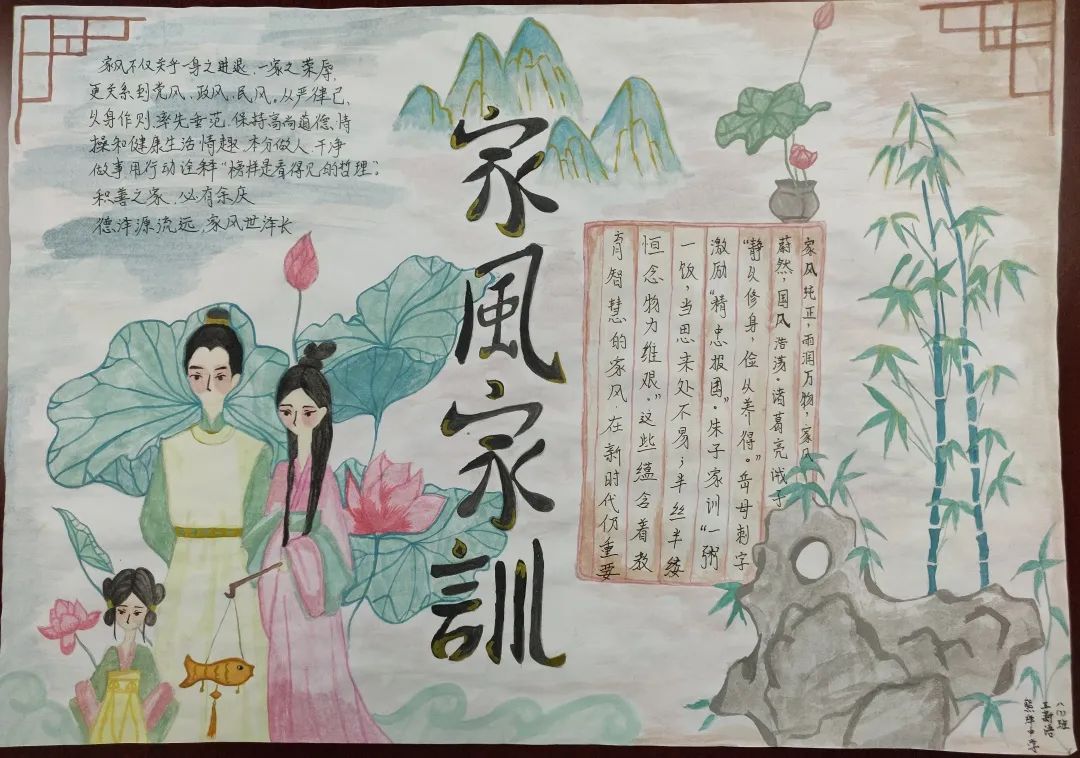 家风不仅关乎一身之进退、一家之荣辱,
更关系到党风、政风、民风。从严律己、
以身作则、率先垂范、保持高尚道德、情
操和健康生活情趣、本分做人、干净
做事用行动诠释“榜样是看得见的哲理。”
积善之家,必有余庆
德泽源流远,家风世泽长
家風家訓
家风纯正,雨润万物,家风
蔚然,国风浩荡。诸葛亮诫子
“静以修身,俭以养得。”岳母刺字
激励“精忠报国”。朱子家训“一粥
一饭,当思来处不易;半丝半缕
恒念物力维艰。”这些蕴含着教
育智慧的家风,在新时代仍重要